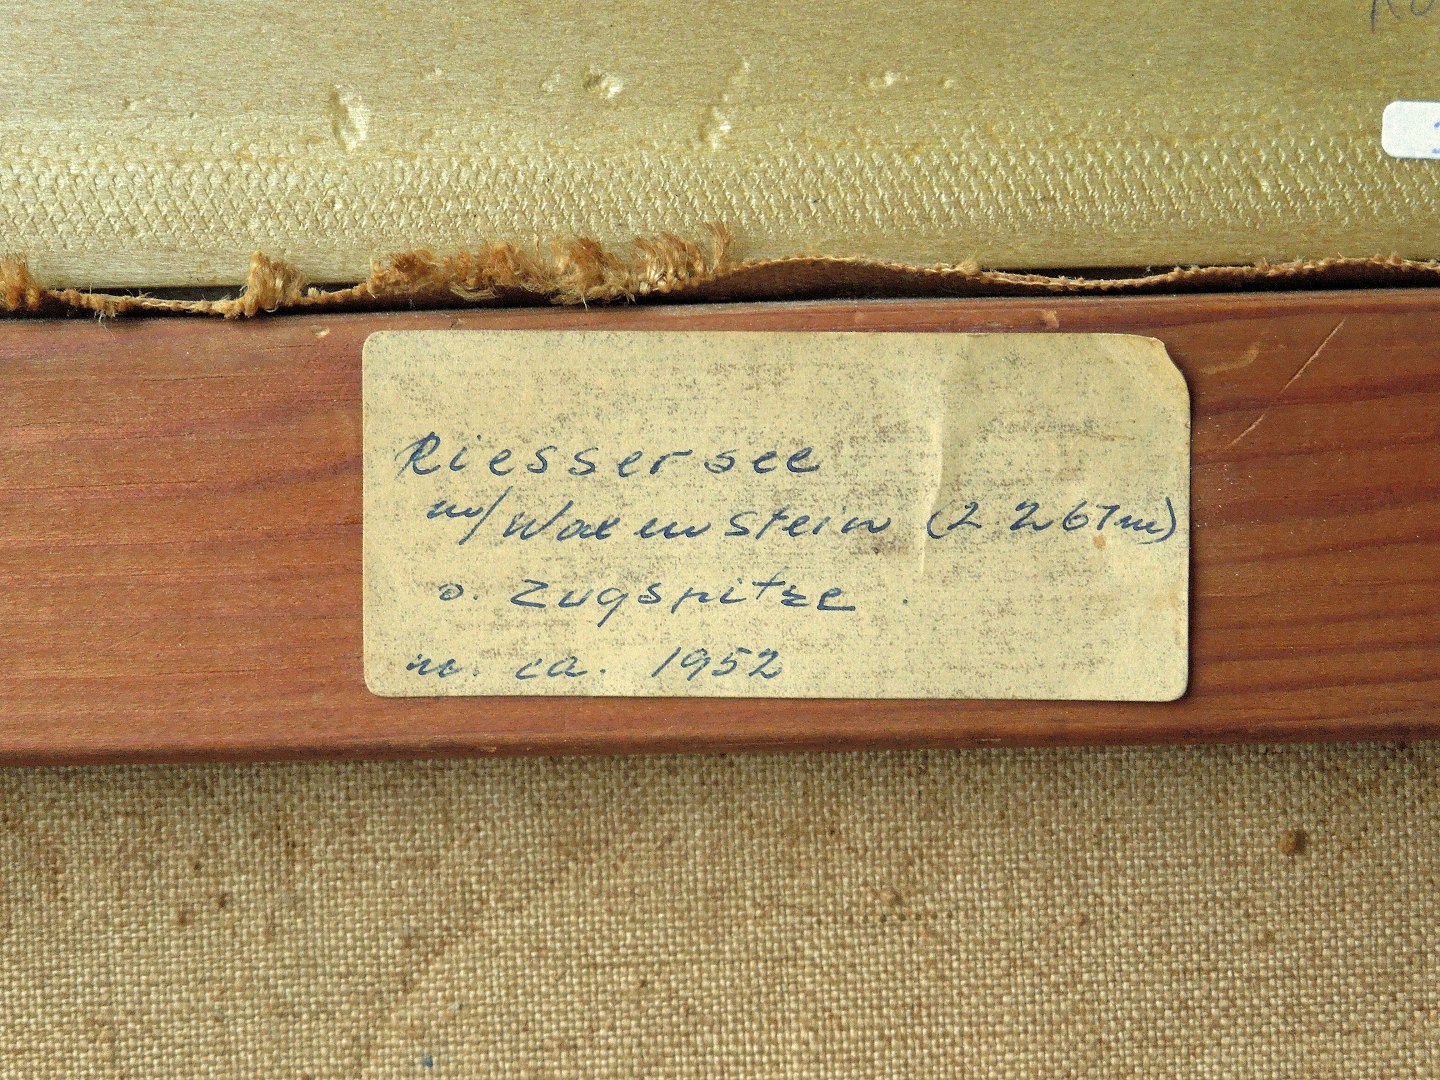 Riessersee
m/Waxenstein (2267m)
o. Zugspitze.
m. ca. 1952